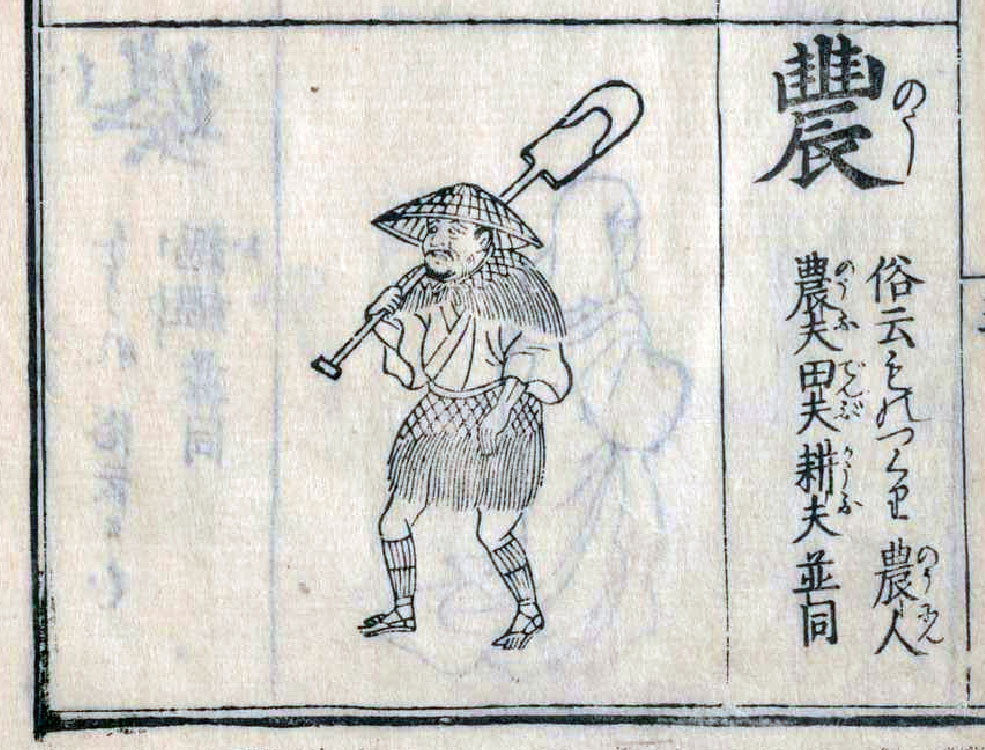 農 のう
俗云ものつくり 農人 のうにん
農夫 のうふ 田夫 でんぶ 耕夫 かうふ 並同